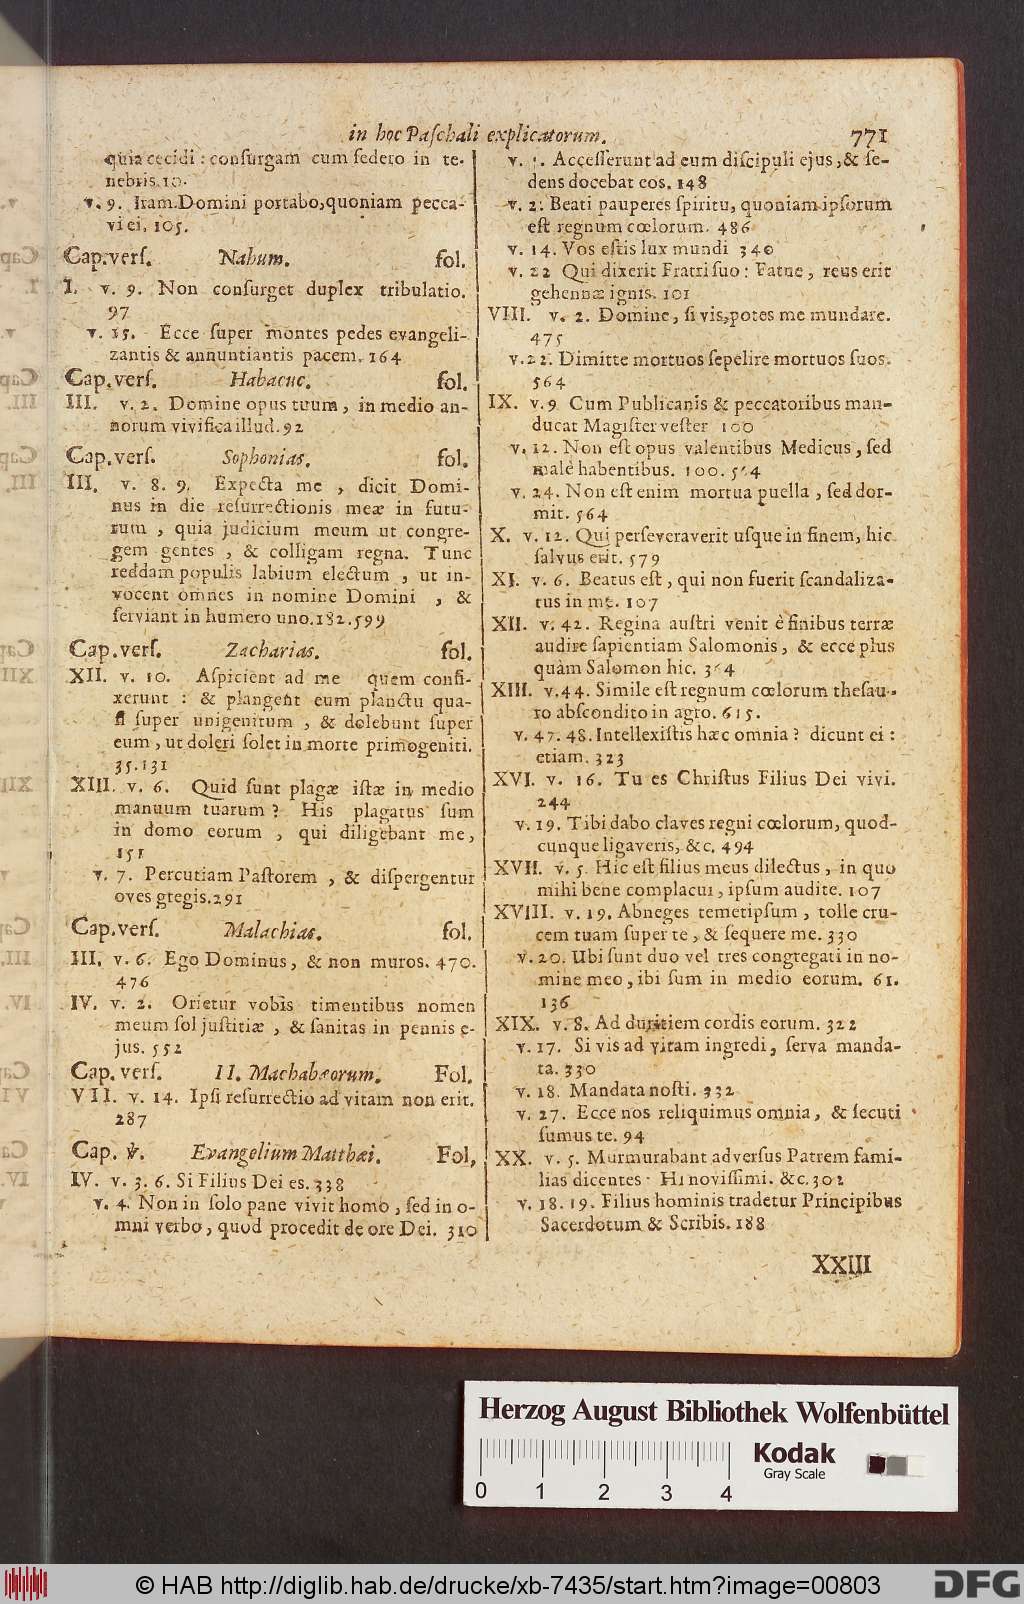 in hoc Paſchali explicatorum. 771
quia cecidi : conſurgam cum ſedero in te-
nebris. 10.
v. 9. Iram Domini portabo, quoniam pecca-
vi ei, 105.
Cap. verſ. Nahum. fol.
I. v. 9. Non conſurget duplex tribulatio.
97
v. 15. Ecce ſuper montes pedes evangeli-
zantis & annuntiantis pacem. 164
Cap. verſ. Habacuc. fol.
III. v. 2. Domine opus tuum, in medio an-
norum vivifica illud. 92
Cap. verſ. Sophonias. fol.
III. v. 8. 9. Expecta me, dicit Domi-
nus in die reſurrectionis meæ in futu-
rum, quia judicium meum ut congre-
gem gentes, & colligam regna. Tunc
reddam populis labium electum, ut in-
vocent omnes in nomine Domini, &
ſerviant in humero uno. 182. 599
Cap. verſ. Zacharias. fol.
XII. v. 10. Aſpicient ad me quem confi-
xerunt : & plangent eum planctu qua-
ſi ſuper unigenitum, & dolebunt ſuper
eum, ut doleri ſolet in morte primogeniti.
35. 131
XIII. v. 6. Quid ſunt plagæ iſtæ in medio
manuum tuarum? His plagatus ſum
in domo eorum, qui diligebant me,
151
v. 7. Percutiam Paſtorem, & diſpergentur
oves gregis. 291
Cap. verſ. Malachias. fol.
III. v. 6. Ego Dominus, & non muros. 470.
476
IV. v. 2. Orietur vobis timentibus nomen
meum ſol juſtitiæ, & ſanitas in pennis e-
jus. 552
Cap. verſ. II. Machabæorum. Fol.
VII. v. 14. Ipſi reſurrectio ad vitam non erit.
287
Cap. v. Evangelium Matthæi. Fol,
IV. v. 3. 6. Si Filius Dei es. 338
v. 4. Non in ſolo pane vivit homo, ſed in o-
mni verbo, quod procedit de ore Dei. 310
v. 1. Acceſſerunt ad eum diſcipuli ejus, & ſe-
dens docebat eos. 148
v. 2. Beati pauperes ſpiritu, quoniam ipſorum
eſt regnum cœlorum. 486
v. 14. Vos eſtis lux mundi 340
v. 22 Qui dixerit Fratri ſuo : Fatue, reus erit
gehennæ ignis. 101
VIII. v. 2. Domine, ſi vis, potes me mundare.
475
v. 22. Dimitte mortuos ſepelire mortuos ſuos.
564
IX. v. 9 Cum Publicanis & peccatoribus man-
ducat Magiſter veſter 100
v. 12. Non eſt opus valentibus Medicus, ſed
malè habentibus. 100. 564
v. 24. Non eſt enim mortua puella, ſed dor-
mit. 564
X. v. 12. Qui perſeveraverit uſque in finem, hic
ſalvus erit. 579
XI. v. 6. Beatus eſt, qui non fuerit ſcandaliza-
tus in me. 107
XII. v. 42. Regina auſtri venit è finibus terræ
audire ſapientiam Salomonis, & ecce plus
quàm Salomon hic. 364
XIII. v. 44. Simile eſt regnum cœlorum theſau-
ro abſcondito in agro. 615.
v. 47. 48. Intellexiſtis hæc omnia? dicunt ei :
etiam. 323
XVI. v. 16. Tu es Chriſtus Filius Dei vivi.
244
v. 19. Tibi dabo claves regni cœlorum, quod-
cunque ligaveris, &c. 494
XVII. v. 5. Hic eſt filius meus dilectus, in quo
mihi bene complacui, ipſum audite. 107
XVIII. v. 19. Abneges temetipſum, tolle cru-
cem tuam ſuper te, & ſequere me. 330
v. 20. Ubi ſunt duo vel tres congregati in no-
mine meo, ibi ſum in medio eorum. 61.
136
XIX. v. 8. Ad duritiem cordis eorum. 322
v. 17. Si vis ad vitam ingredi, ſerva manda-
ta. 330
v. 18. Mandata noſti. 332
v. 27. Ecce nos reliquimus omnia, & ſecuti
ſumus te. 94
XX. v. 5. Murmurabant adverſus Patrem fami-
lias dicentes : Hi noviſſimi. &c. 302
v. 18. 19. Filius hominis tradetur Principibus
Sacerdotum & Scribis. 188
XXIII
Herzog August Bibliothek Wolfenbüttel
Kodak
Gray Scale
0 1 2 3 4
© HAB http://diglib.hab.de/drucke/xb-7435/start.htm?image=00803
DFG